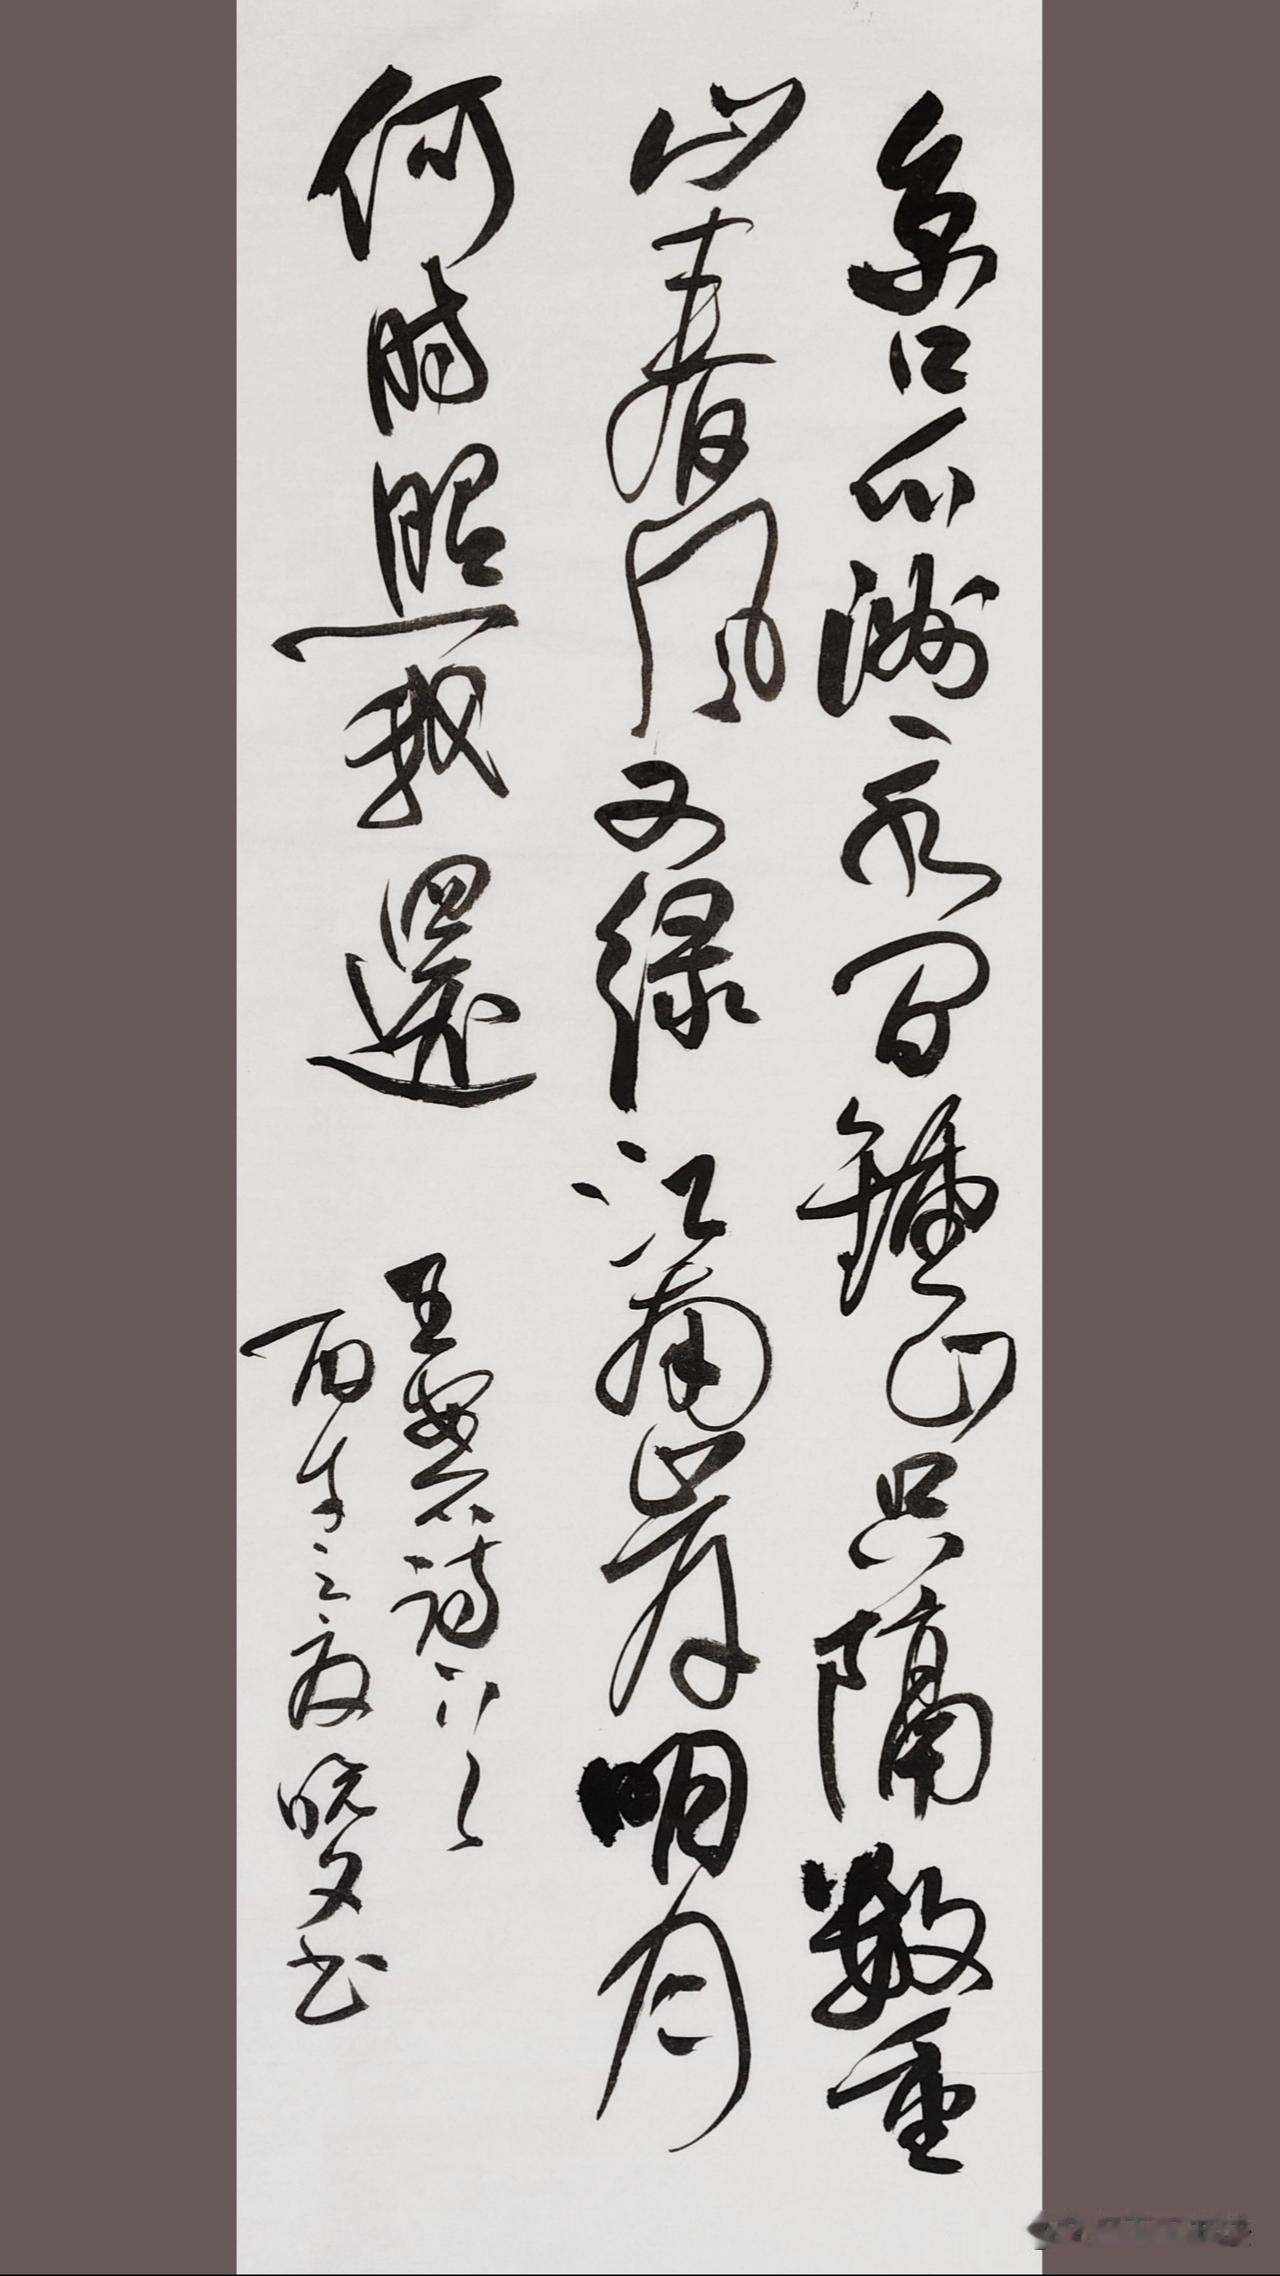 京口瓜洲一水间鍾山只隔数重
山春风又绿江南岸明月
何时照我還
王安石诗一首
百生之友晓夕书